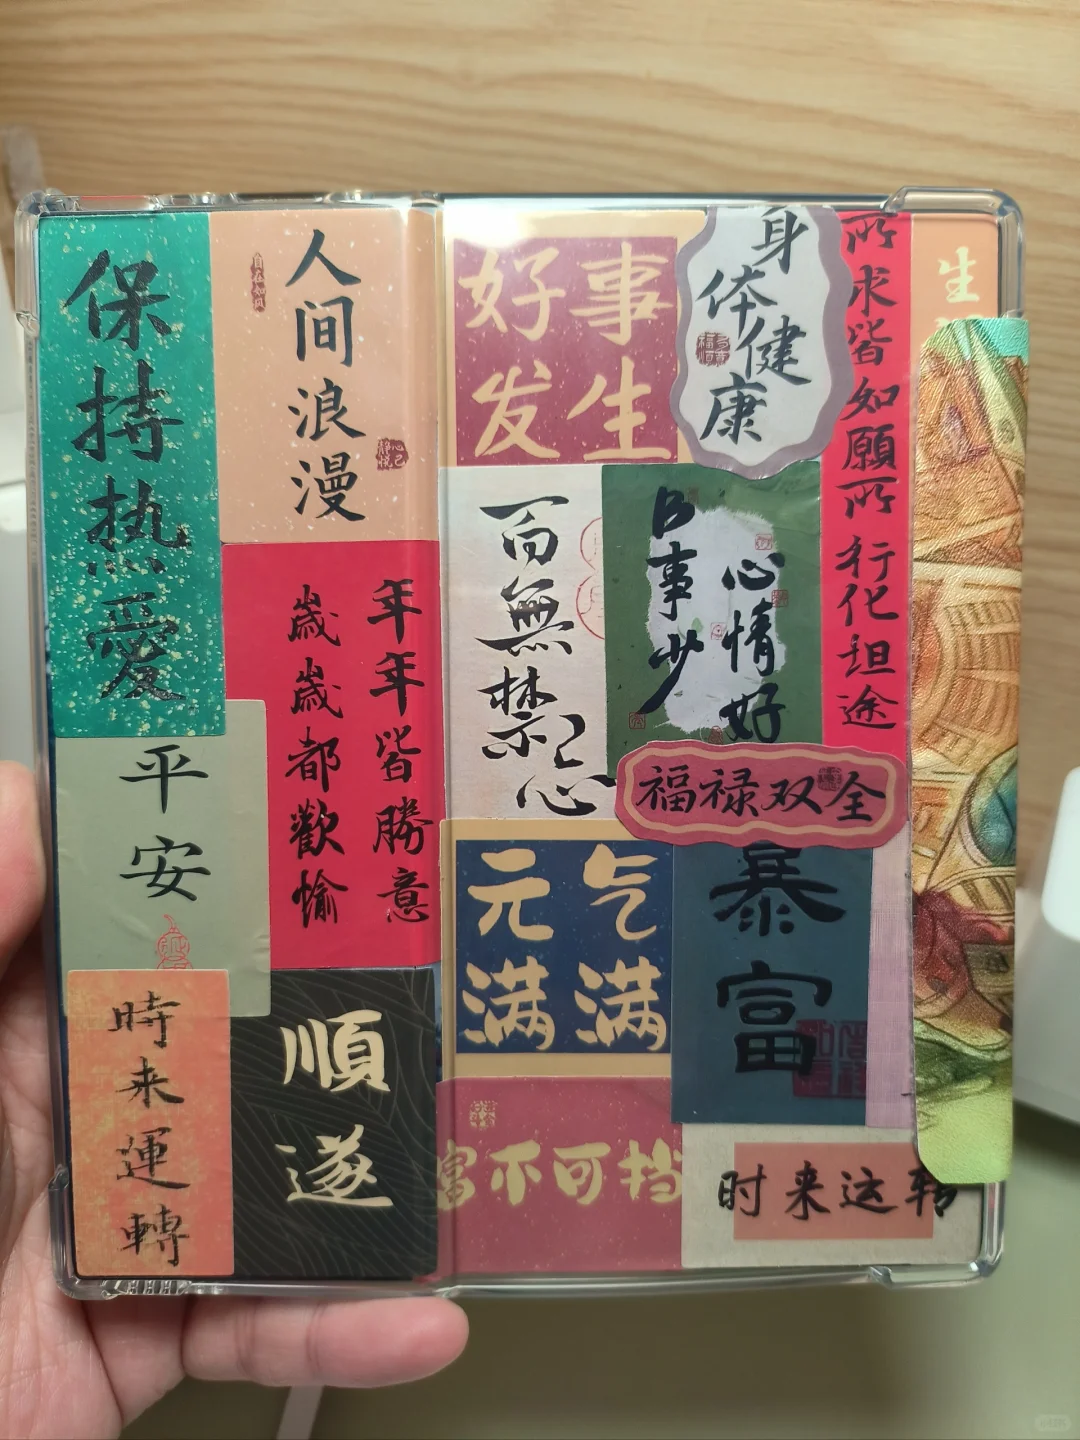 保持热爱
人间浪漫
年年皆勝意
歲歲都歡愉
平安
時来運轉
順遂
好事
发生
身体健康
所求皆如願所行化坦途
生
百無禁忌
B事少
心情好
福禄双全
元气
满满
暴富
富不可挡
时来运转